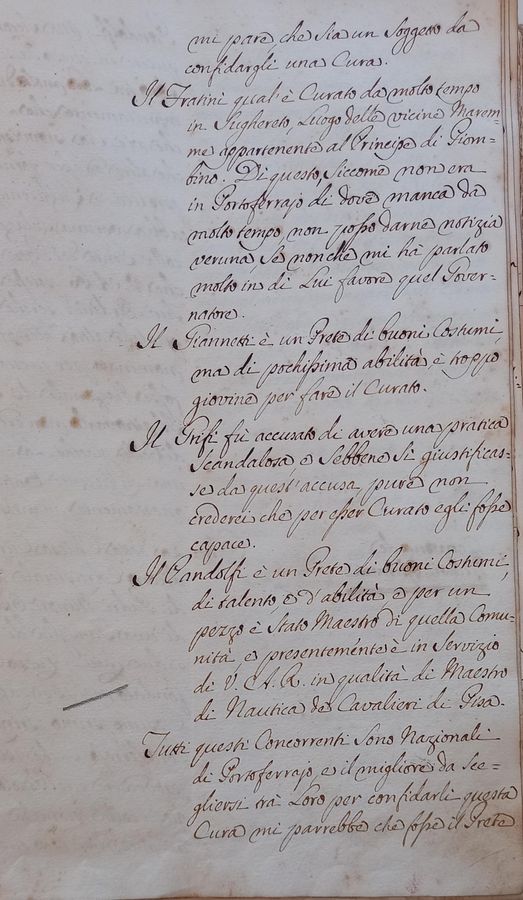 mi pare, che sia un Soggetto da
confidargli una Cura.
Il Fratini qual'è Curato da molto tempo
in Sughereto, Luogo delle vicine Marem-
me appartenente al Principe di Piom-
bino. Di questo, siccome non era
in Portoferrajo di dove manca da
molto tempo, non posso darne notizia
veruna, se nonche mi hà parlato
molto in di Lui favore quel Gover-
natore.
Il Giannetti è un Prete di buoni Costumi,
ma di pochissima abilità, e troppo
giovine per fare il Curato.
Il Grifi fù accusato di avere una pratica
scandalosa e sebbene si giustificas-
se da quest'accusa, pure non
crederei che per esser Curato egli fosse
capace.
Il Candolfi è un Prete di buoni Costumi,
di talento, e d'abilità e per un
pezzo è stato Maestro di quella Comu-
nità, e presentemente è in Servizio
di V. A. R. in qualità di Maestro
di Nautica de Cavalieri di Pisa.
Tutti questi Concorrenti sono Nazionali
di Portoferrajo, e il migliore da sce-
gliersi trà Loro per confidarli questa
Cura mi parrebbe che fosse il Prete